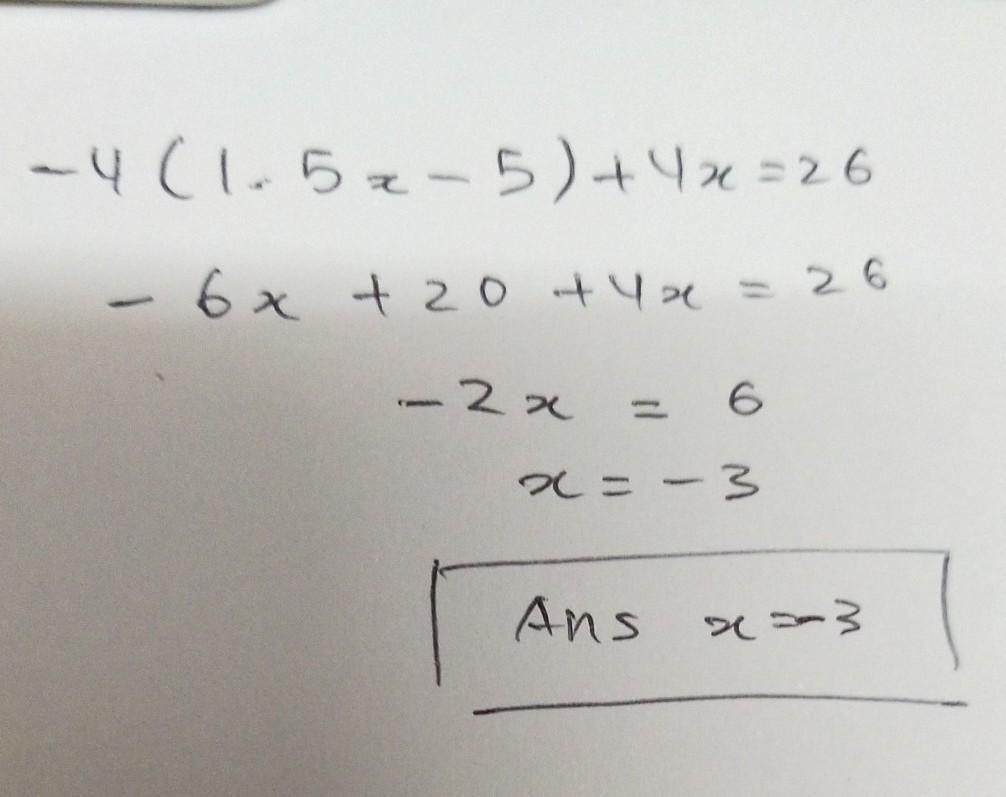 -4(1.5x-5)+4x=26
-6x+20+4x=26
-2x=6
x=-3
Ans x=-3